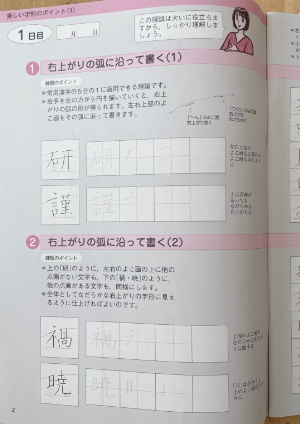 美しい字形のポイント(1)
1日目 月 日
この理論は大いに役立ちま
すから、しっかり理解しま
しょう。
1 右上がりの弧に沿って書く(1)
練習のポイント
*常用漢字の5分の1に適用できる理論です。
*右手を左の方から円を描いていくと、右上
がりの弧の形が得られます。左右上部のよ
こ画をその弧に沿って書きます。
研
謹
2 右上がりの弧に沿って書く(2)
練習のポイント
*上の「研」のように、左右のよこ画の上に他の
点画がない文字も、下の「禍・暁」のように、
他の点画がある文字も、同様にします。
*全体としてなだらかな右上がりの字形に見え
るように仕上げればよいのです。
禍
暁
2